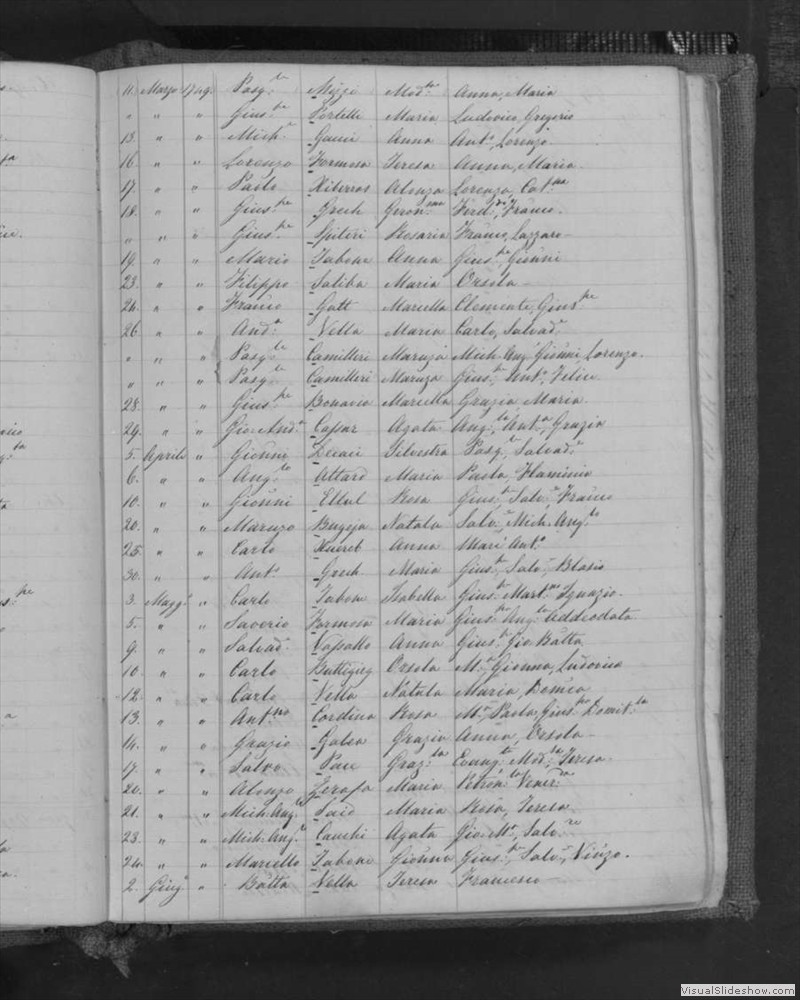 11. Marzo 1749. Pasq.le Mizzi Mod.ta Anna, Maria
" " " Gius.pe Portelli Maria Ludovico, Gregorio
13. " " Mich.e Gauci Anna Ant.o, Lorenzo.
16. " " Lorenzo Formosa Teresa Anna, Maria
17. " " Paolo Xiberras Alonza Lorenza, Cat.na
18. " " Gius.pe Grech Geron.ma Ferd.do, Franco.
" " " Gius.pe Spiteri Rosaria Franco, Lazzaro
19. " " Mario Tabone Anna Gius.pe, Gionni
23. " " Filippo Saliba Maria Orsola
24. " " Franco Gatt Marcella Clemente, Gius.pe
26. " " And.a Vella Maria Carlo, Salvad.e
" " " Pasq.le Camilleri Maruzza Mich. Ang. Gionni, Lorenzo.
" " " Pasq.le Camilleri Maruza Gius.pe, Ant.o, Felice
28. " " Gius.pe Bonavia Marcella Grazia Maria
29. " " Gio: And.a Cassar Agata Ang.la, Ant.a, Grazia
5. Aprile " Gionni Silvestra Pasq.le, Salvad.e
6. " " Ang.lo Attard Maria Paolo, Flaminio
10. " " Gionni Ellul Rosa Gius.pe, Salv.e, Franco
20. " " Maruzo Bugeja Natala Salv.e, Mich. Ang.lo
25. " " Carlo Xuereb Anna Mari' Ant.a
30. " " Ant.o Grech Maria Gius.pe, Salv.e, Blasio
3. Magg.o " Carlo Tabone Isabella Gius.pe, Mart.no, Ignazio.
5. " " Saverio Formosa Maria Gius.pe, Ang.lo, Addeodata
9. " " Salvad.e Vassallo Anna Gius.pe, Gio Batta
10. " " Carlo Buttigieg Orsola M.a, Gionna, Ludovica
12. " " Carlo Vella Natala Maria, Domca
13. " " Ant.no Cordina Rosa M.a, Paola, Gius.pa, Domit.la
14. " " Grazio Galea Grazia Anna, Orsola
17. " " Salvo Pace Graz.la Evang.ta, Mod.ta, Teresa
20. " " Alonzo Zerafa Maria Petron.la, Vener.da
21. " " Mich. Ang.lo Said Maria Rosa, Teresa
23. " " Mich. Ang.lo Cauchi Agata Gio: M.a, Salv.re
24. " " Marcello Tabone Gionna Gius.pe, Salv.e, Vinzo.
2. Giug.o " Batta Vella Teresa Francesco
VisualSlideshow.com